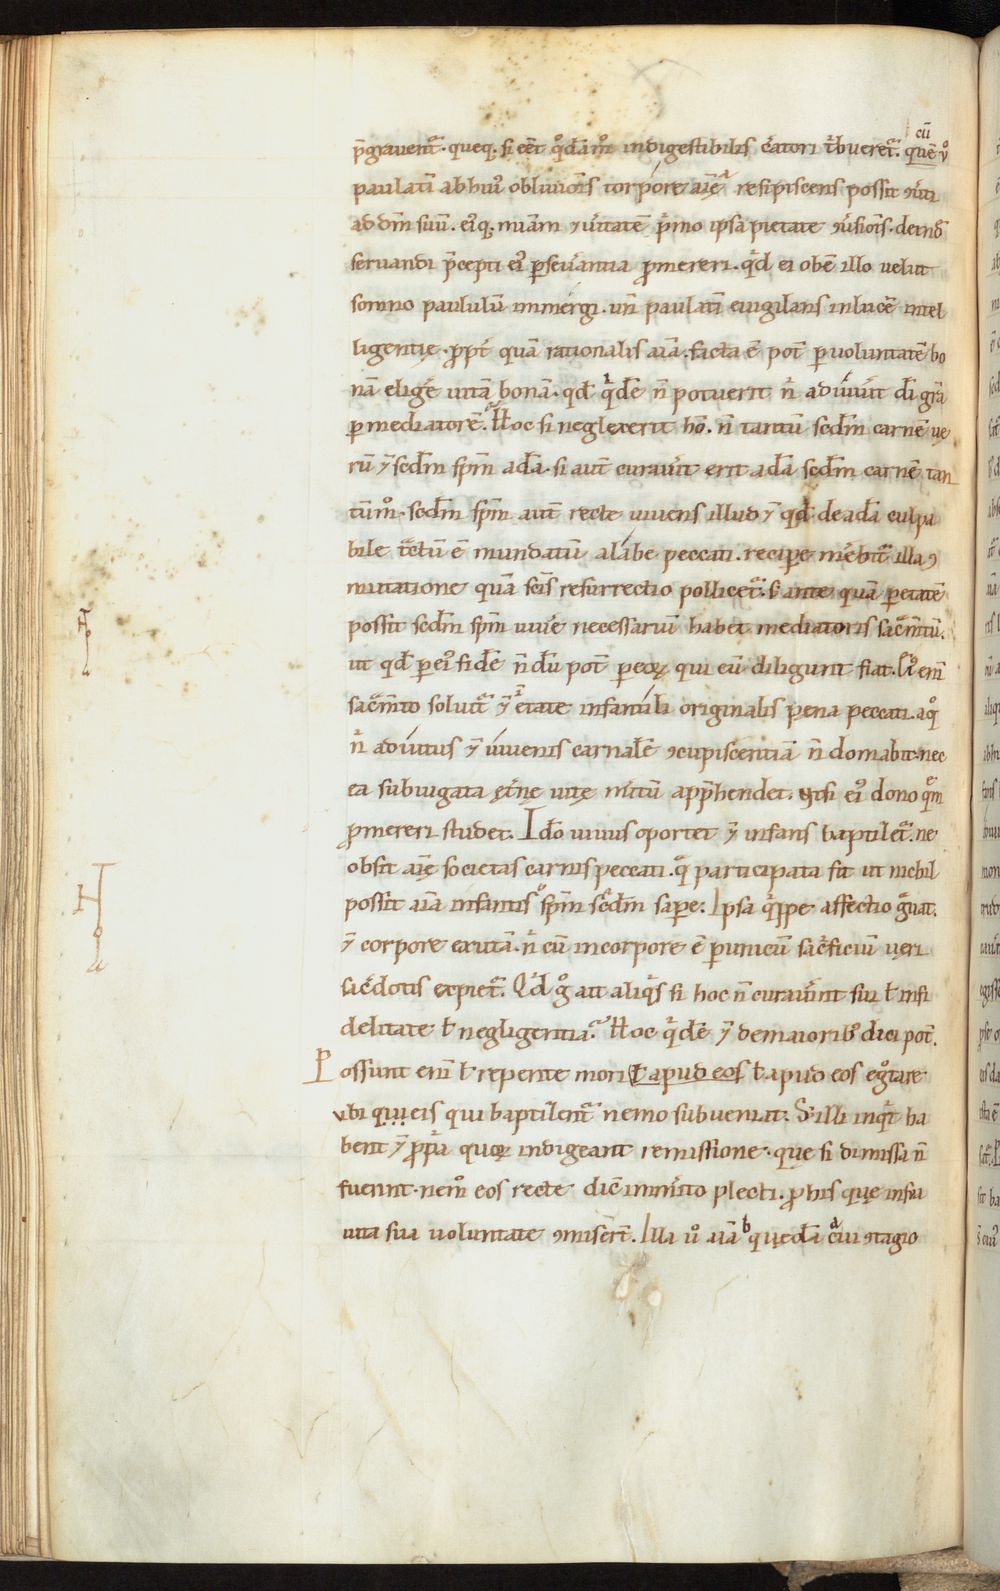 cū
p̄grauent᷑. queq; si eēt q̊dā m̊ indigestibilis c̄atori t̄bueret᷑. quē ů
paulatī ab hui᷒ obliuiōis torpore aīę resipiscens possit ꝯūti
ad dm̄ suū. ei᷒q; miām ⁊ ūitatē p̄mo ipsa pietate ꝯūsiōis. deinđ
seruandi p̄cepti ei᷒ ꝑseūantia ꝓmereri. qđ ei obē illo uelut
somno paululū immergi. un̄ paulatī euigilans in lucē intel
ligentię. ꝓpt̄ quā rationalis aīa facta ē pot̄ ꝑ uoluntatē bo
nā elige᷑ uitā bonā. qđ qđē n̄ potuerit n̄ adiuu᷑it dī gr̄a
ꝑ mediatorē. Hoc si neglexerit hō. n̄ tantū scđm carnē ue
rū ⁊ scđm spm̄ adā. si aut̄ curau᷑it erit adā scđm carnē tan
tūm̊. scđm spm̄ aut̄ recte uiuens illud ⁊ qđ de adā culpa
bile t̄ctū ē mundatū a labe peccati. recipe mrebit᷑ illa ꝯ
mutatione quā scīs resurrectio pollicet᷑. s; ante quā ꝑ etatē
possit scđm spm̄ uiue᷑ necessariū habet mediatoris sac̄m̄tū.
ut qđ ꝑ ei᷒ fidē n̄dū pot̄ ꝑ eoꝝ qui eū diligunt fiat. enī
sac̄m̄to soluit᷑ ⁊ ī etate infantili originalis pena peccati. a q̊
n̄ adiutus ⁊ iuuenis carnalē ꝯcupiscentiā n̄ domabit. nec
ea subiugata ęt̄nę uitę m̄itū app̄hendet. nisi ei᷒ dono quē
ꝓmereri studet. Iđo uiuus oportet ⁊ infans baptizet᷑. ne
obsit aīę societas carnis peccati. q̄ participata fit ut nichil
possit aīa infantis scđm spm̄ sape. Ipsa q̄ppe affectio g̊uat.
⁊ corpore exutā. n̄ cū in corpore ē ꝑ unicū sac̄ficiū ueri
sac̄dotis expiet᷑. Qđ g̊ ait aliq̄s si hoc n̄ curau᷑int sui ł infi
delitate ł negligentia. Hoc qđē ⁊ de maiorib᷒ dici pot̄.
Possunt enī ł repente mori ł apud eos ł apud eos eg̊tare
ubi qui eis qui baptizent᷑ nemo subueniat. S; illi inq̄t ha
bent ⁊ ꝓp̄a quoꝝ indigeant remissione. que si dimissa n̄
fuerint. nem̊ eos recte dic̄ im̄mito plecti. ꝓ his quę in sua
uita sua uoluntate ꝯmiser̄t. Illa ů aīa quędā cui ꝯtagio